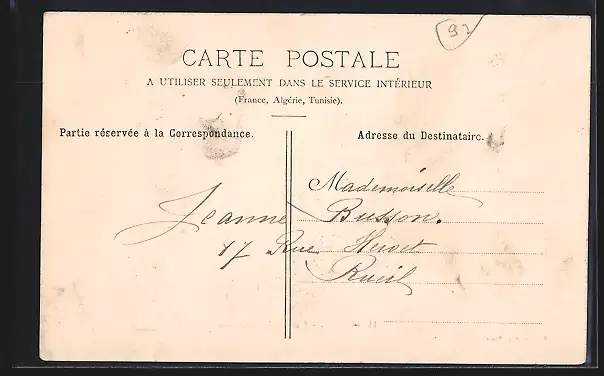 92
CARTE POSTALE
A UTILISER SEULEMENT DANS LE SERVICE INTÉRIEUR
(France, Algérie, Tunisie).
Partie réservée à la Correspondance.
Adresse du Destinataire.
Mademoiselle
Jeanne Busson.
17 Rue Hervet
Rueil